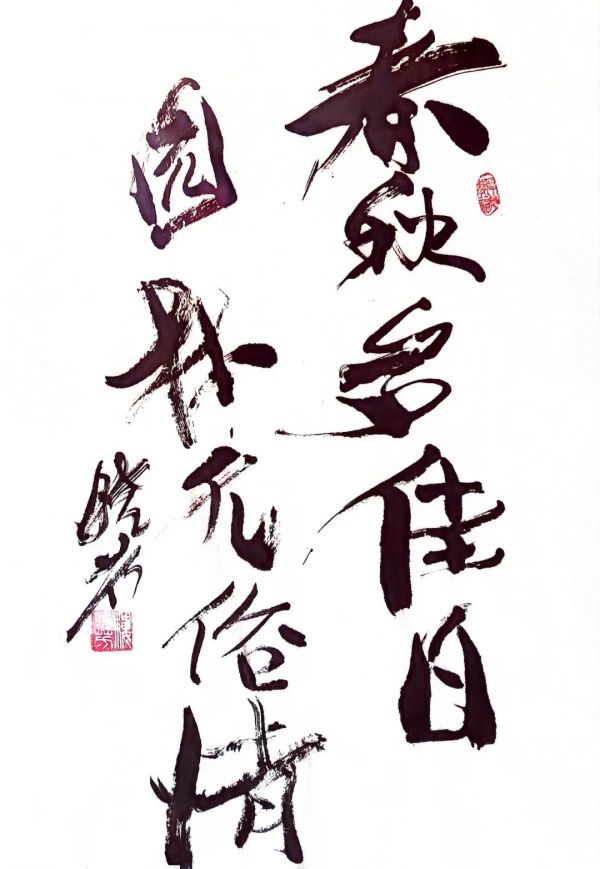 春秋多佳日
园林无俗情